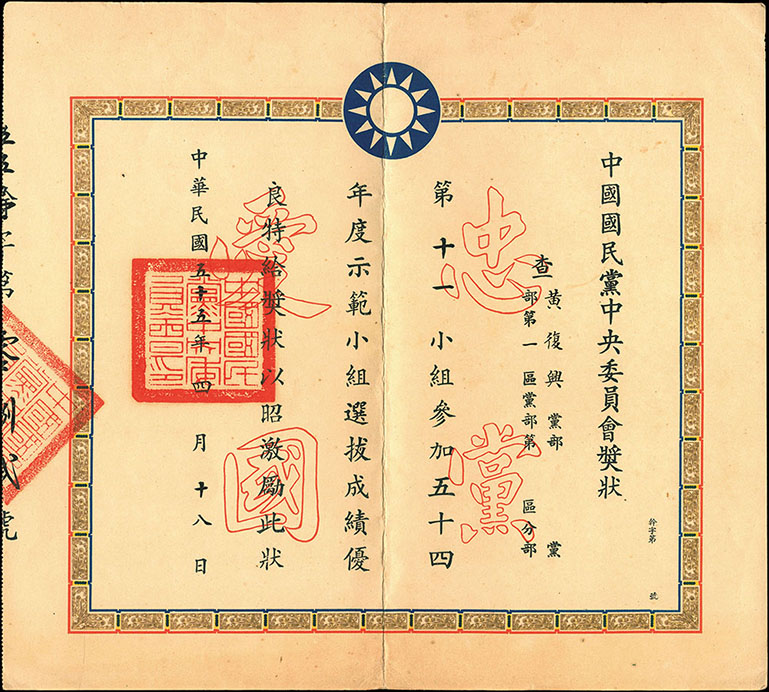 幹字第 號
中國國民黨中央委員會獎狀
查黃復興黨部 黨
部第一區黨部第 區分部
第十一小組參加五十四
年度示範小組選拔成績優
良特給獎狀以昭激勵此狀
中華民國五十五年四月十八日
忠黨
愛國
中國國民黨中央委員會印